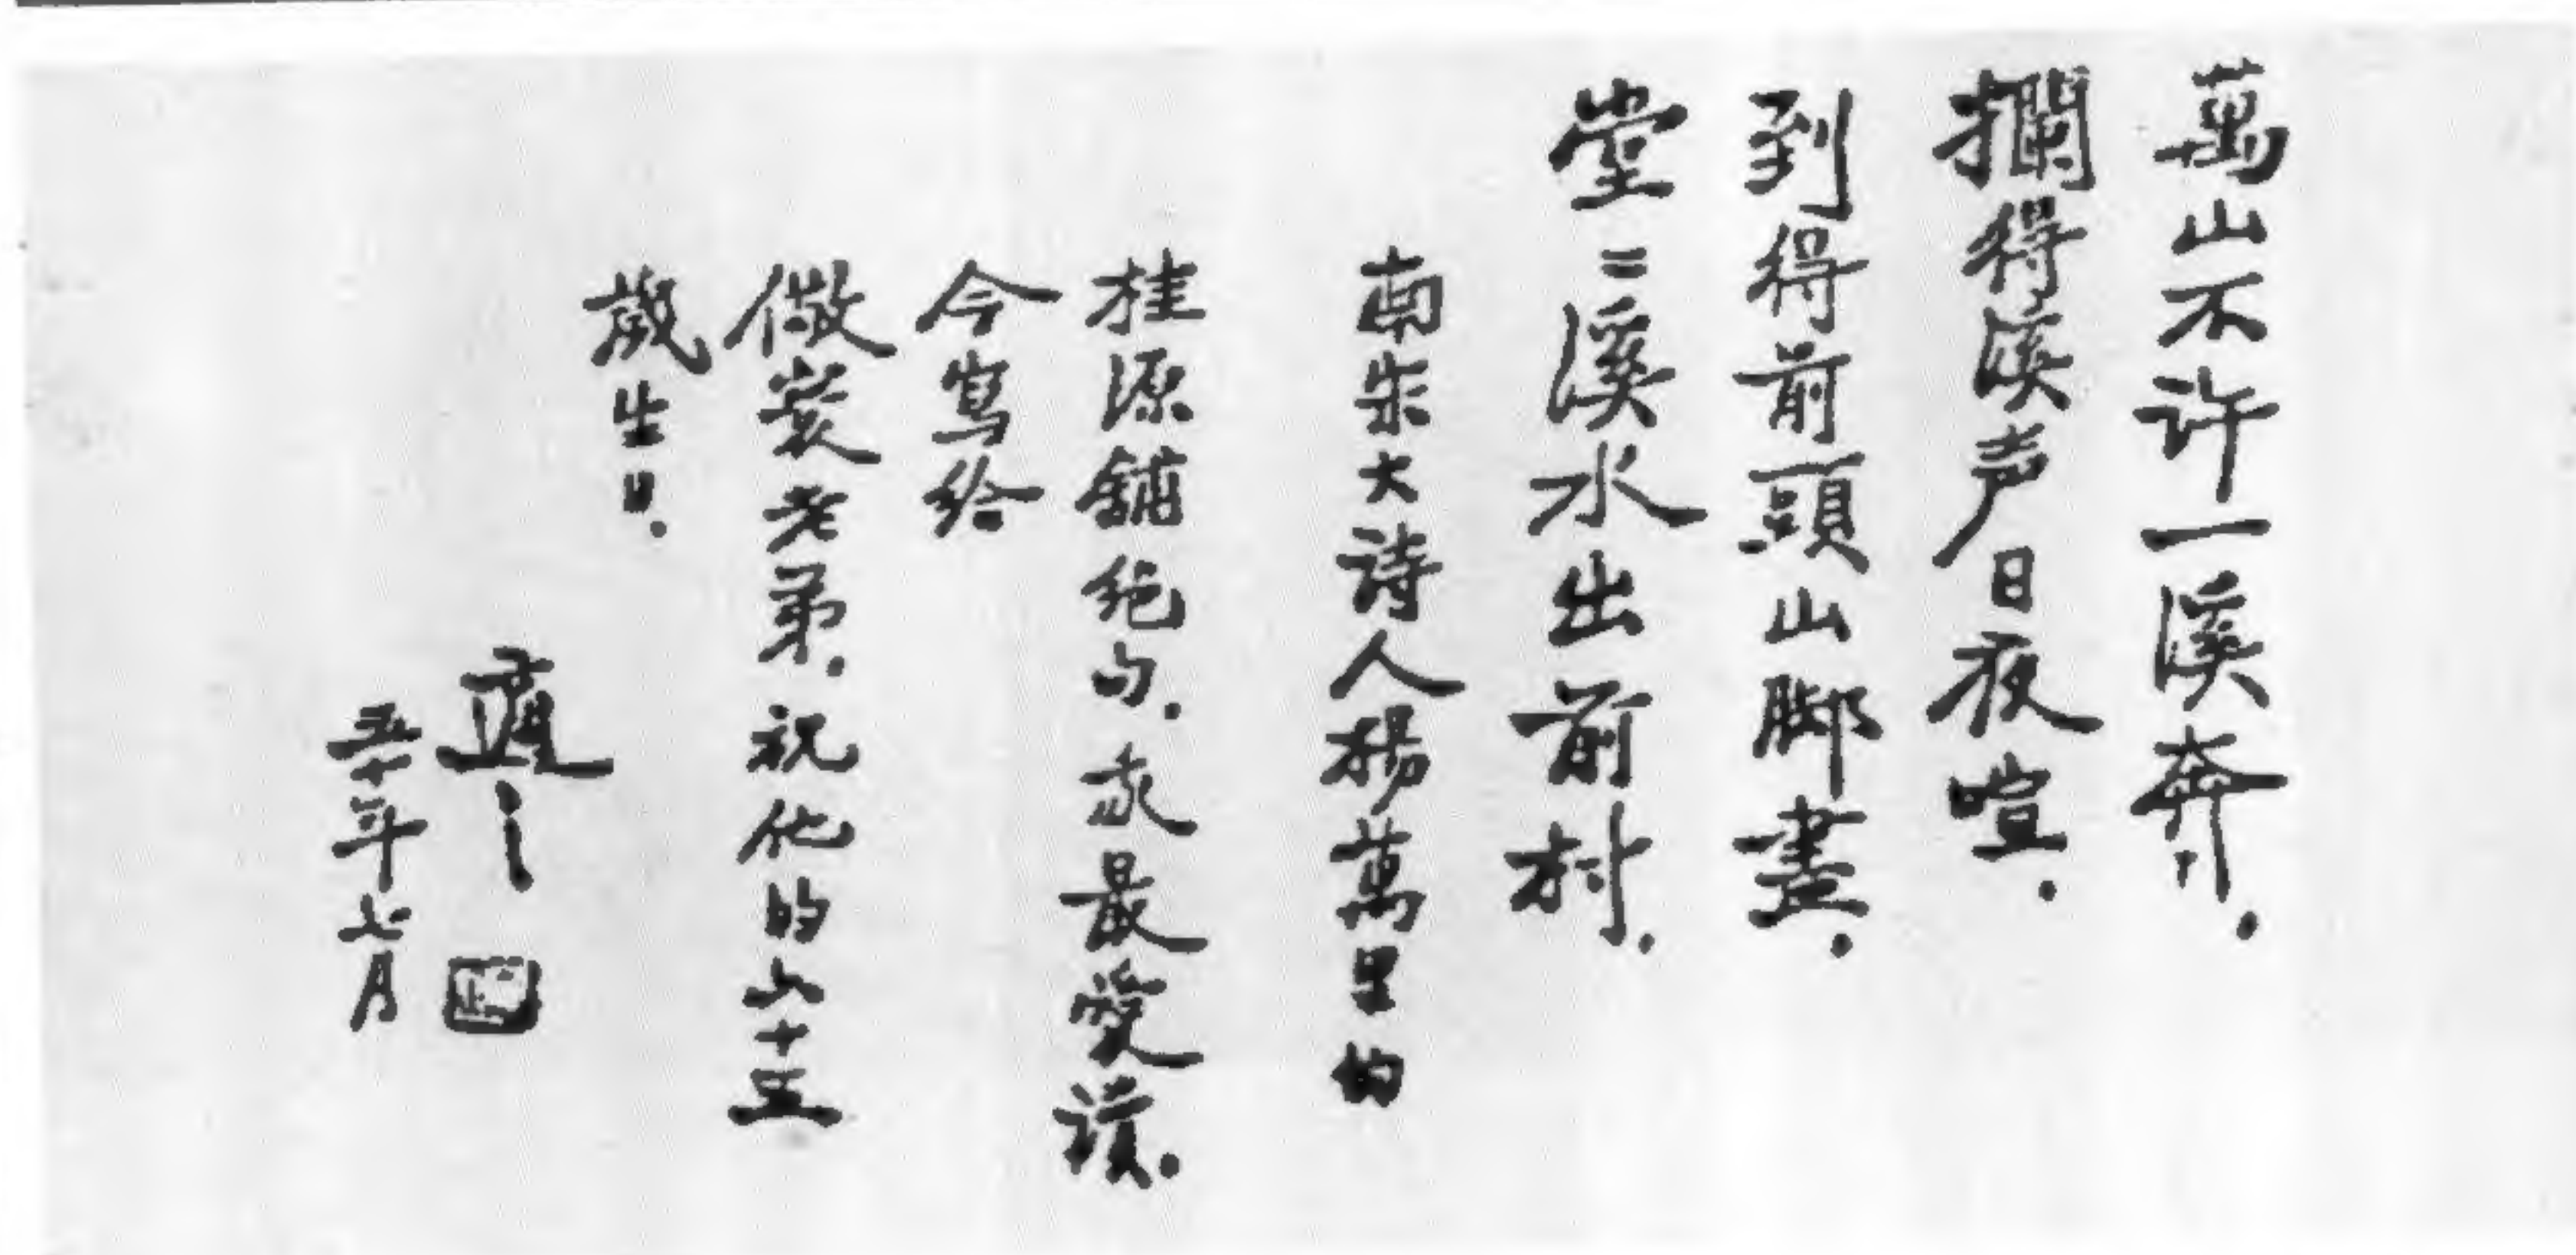 萬山不许一溪奔.
攔得溪声日夜喧.
到得前頭山脚盡.
堂〻溪水出前村.
南宋大詩人楊萬里的
桂源鋪绝句.我最愛讀.
今寫给
儆寰老弟.祝他的六十五
歲生日.
適之
五十年七月